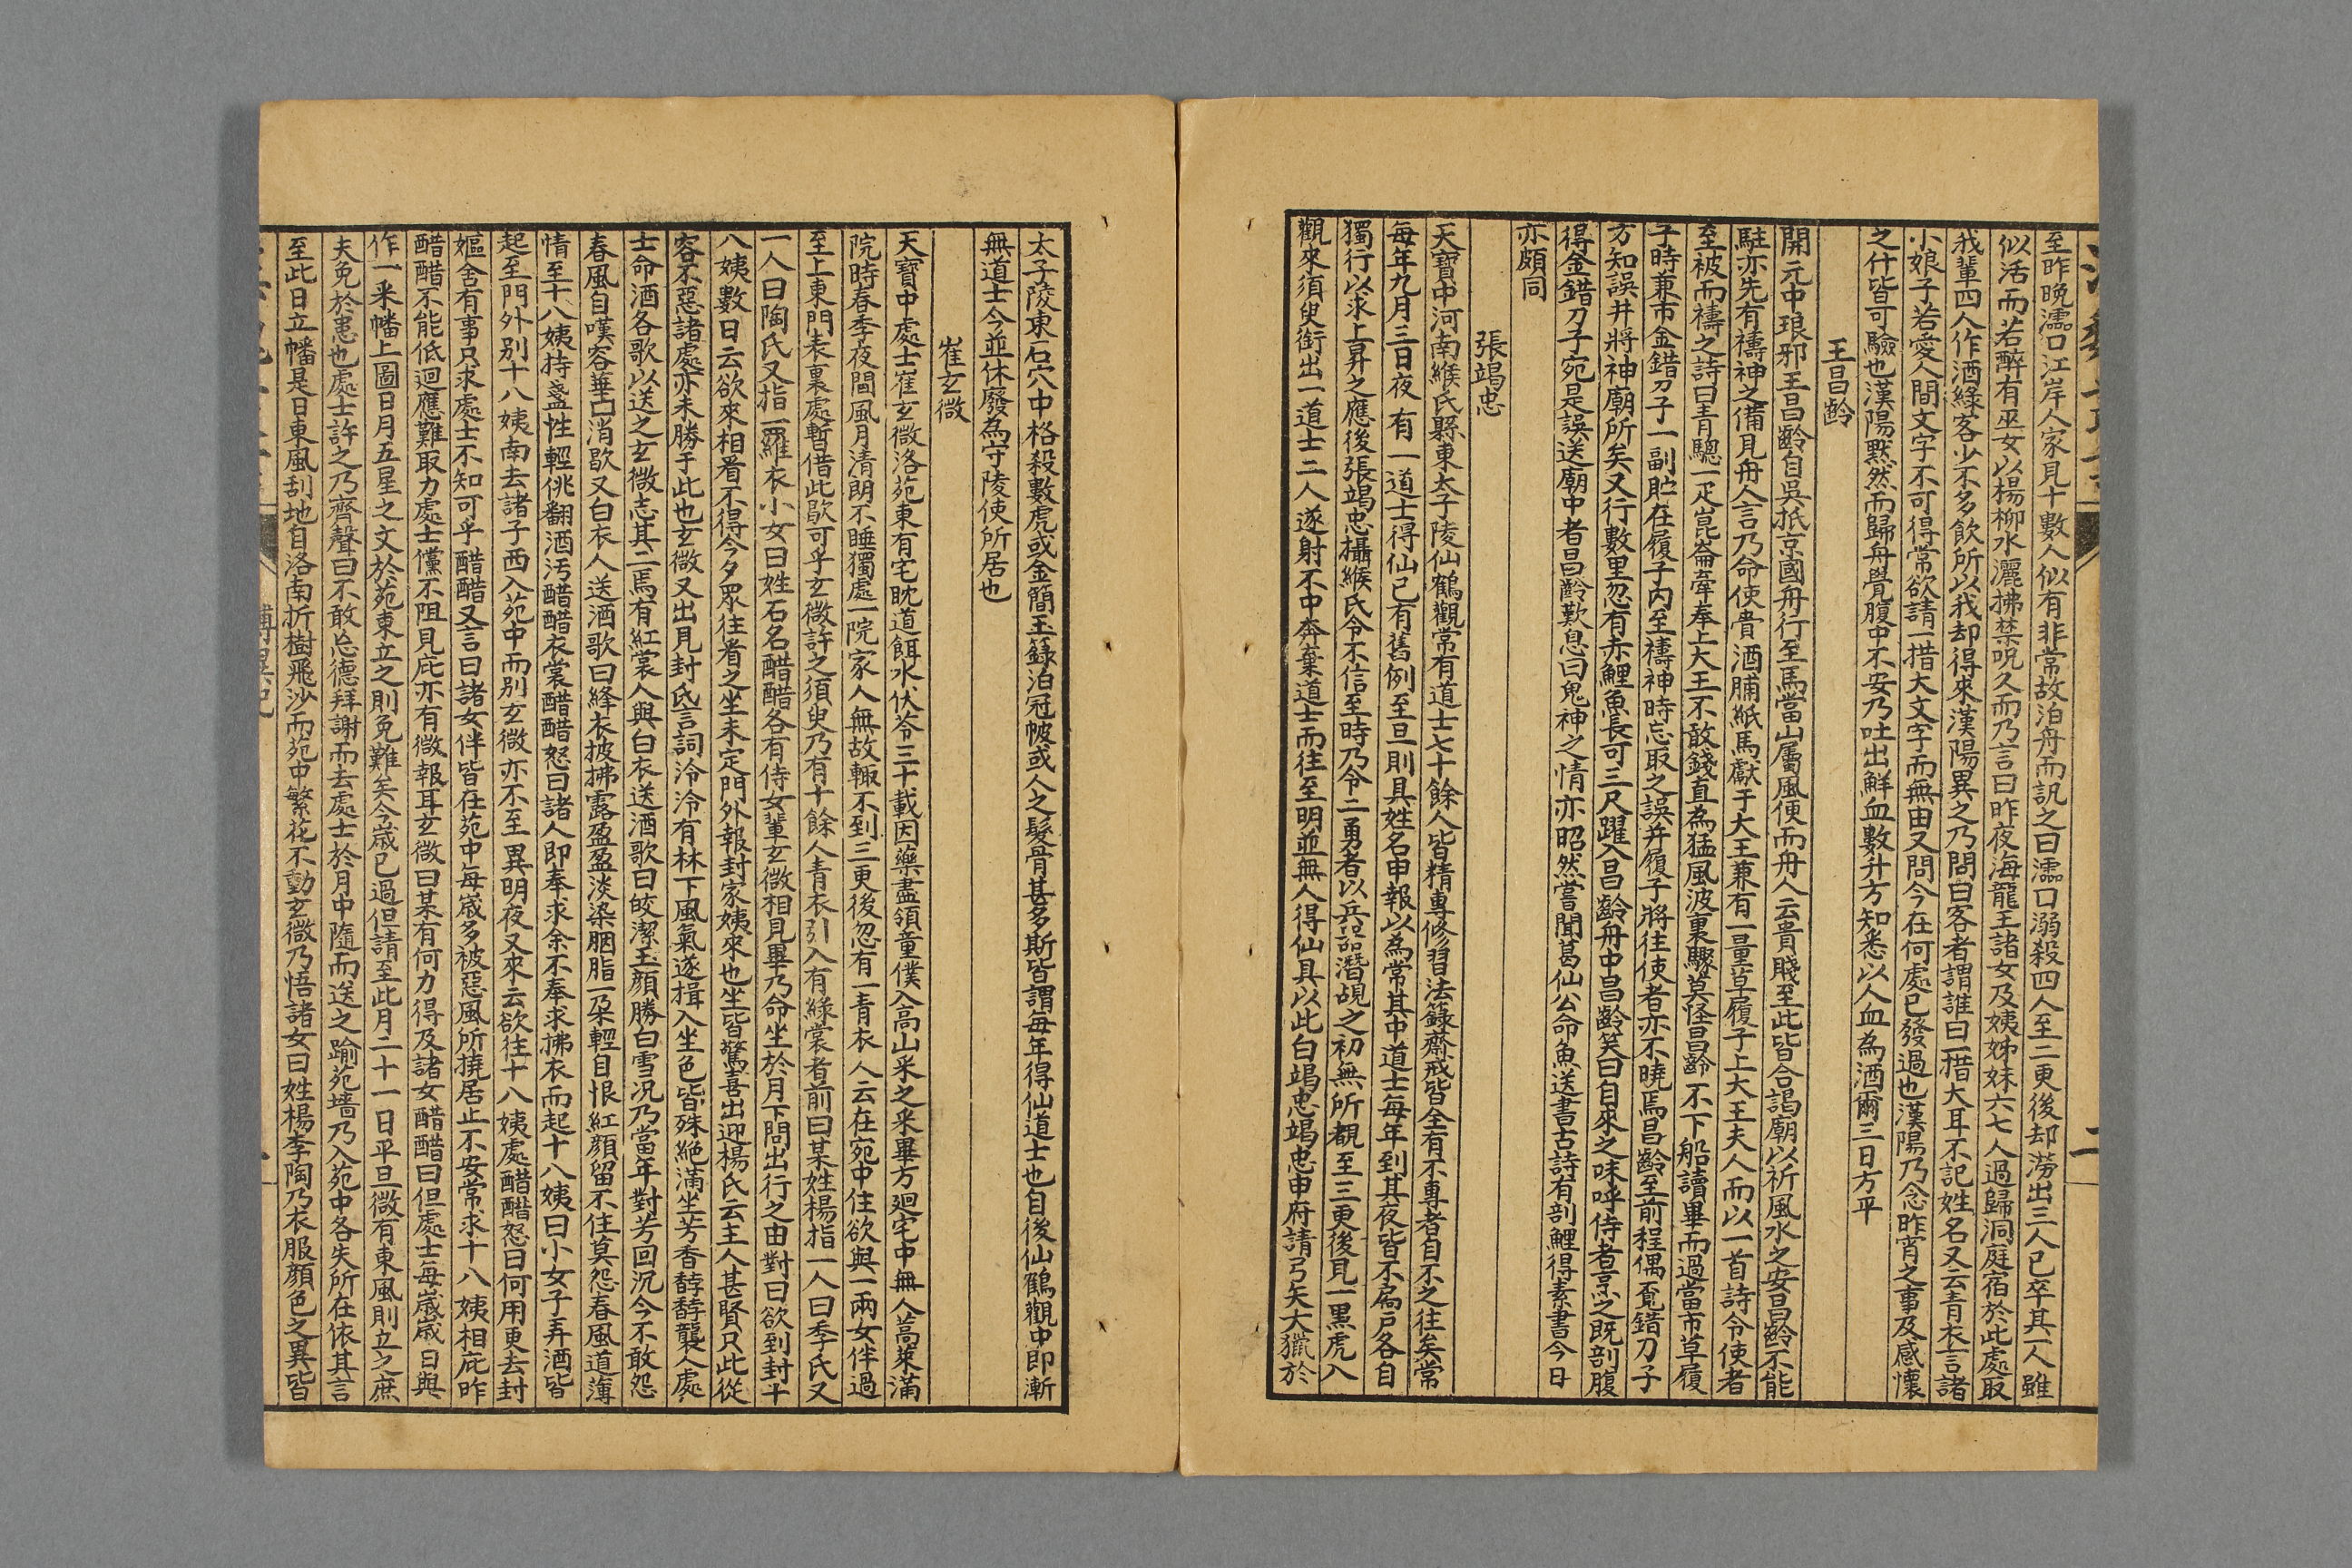 至昨晚濡口江岸人家見十數人似有非常故泊舟而訊之曰濡口溺殺四人至二更後却澇出三人已卒其一人雖
似活而若醉有巫女以楊柳水灑拂禁呪久而乃言曰昨夜海龍王諸女及姨姊妹六七人過歸洞庭宿於此處取
我輩四人作酒緣客少不多飲所以我却得來漢陽異之乃問曰客者謂誰曰一措大耳不記姓名又云青衣言諸
小娘子若愛人間文字不可得常欲請一措大文字而無由又問今在何處已發過也漢陽乃念昨宵之事及感懷
之什皆可驗也漢陽默然而歸舟覺腹中不安乃吐出鮮血數升方知悉以人血為酒爾三日方平
王昌齡
開元中琅邪王昌齡自吳抵京國舟行至馬當山屬風便而舟人云貴賤至此皆合謁廟以祈風水之安昌齡不能
駐亦先有禱神之備見舟人言乃命使賫酒脯紙馬獻于大王兼有一量草履子上大王夫人而以一首詩令使者
至彼而禱之詩曰青驄一疋崑崙牽奉上大王不敢錢直為猛風波裏驟莫怪昌齡不下船讀畢而過當市草履
子時兼市金錯刀子一副貯在履子內至禱神時忘取之誤并履子將往使者亦不曉焉昌齡至前程偶覔錯刀子
方知誤并將神廟所矣又行數里忽有赤鯉魚長可三尺躍入昌齡舟中昌齡笑曰自來之味呼侍者烹之既剖腹
得金錯刀子宛是誤送廟中者昌齡歎息曰鬼神之情亦昭然嘗聞葛仙公命魚送書古詩有剖鯉得素書今日
亦頗同
張竭忠
天寶中河南緱氏縣東太子陵仙鶴觀常有道士七十餘人皆精專修習法籙齋戒皆全有不專者自不之往矣常
每年九月三日夜有一道士得仙已有舊例至旦則具姓名申報以為常其中道士每年到其夜皆不扃戶各自
獨行以求上昇之應後張竭忠攝緱氏令不信至時乃令二勇者以兵器潛覘之初無所覩至三更後見一黑虎入
觀來須臾銜出一道士二人遂射不中奔棄道士而往至明並無人得仙具以此白竭忠竭忠申府請弓矢大獵於
太子陵東石穴中格殺數虎或金簡玉籙洎冠帔或人之髮骨甚多斯皆謂每年得仙道士也自後仙鶴觀中即漸
無道士今並休廢為守陵使所居也
崔玄微
天寶中處士崔玄微洛苑東有宅耽道餌水伏苓三十載因藥盡領童僕入高山采之采畢方廻宅中無人蒿萊滿
院時春季夜間風月清朗不睡獨處一院家人無故輙不到三更後忽有一青衣人云在宛中住欲與一兩女伴過
至上東門表裏處暫借此歇可乎玄微許之須臾乃有十餘人青衣引入有綠裳者前曰某姓楊指一人曰李氏又
一人曰陶氏又指一羅衣小女曰姓石名醋醋各有侍女輩玄微相見畢乃命坐於月下問出行之由對曰欲到封十
八姨數日云欲來相看不得今夕眾往看之坐未定門外報封家姨來也坐皆驚喜出迎楊氏云主人甚賢只此從
容不惡諸處亦未勝于此也玄微又出見封氏言詞泠泠有林下風氣遂揖入坐色皆殊絕滿坐芳香馞馞襲人處
士命酒各歌以送之玄微志其二焉有紅裳人與白衣送酒歌曰皎潔玉顏勝白雪況乃當年對芳回沉今不敢怨
春風自嘆容華口消歇又白衣人送酒歌曰絳衣披拂露盈盈淡染胭脂一朵輕自恨紅顏留不住莫怨春風道薄
情至十八姨持盞性輕佻翻酒汚醋醋衣裳醋醋怒曰諸人即奉求余不奉求拂衣而起十八姨曰小女子弄酒皆
起至門外別十八姨南去諸子西入苑中而別玄微亦不至異明夜又來云欲往十八姨處醋醋怒曰何用更去封
嫗舍有事只求處士不知可乎醋醋又言曰諸女伴皆在苑中每歲多被惡風所撓居止不安常求十八姨相庇昨
醋醋不能低迴應難取力處士儻不阻見庇亦有微報耳玄微曰某有何力得及諸女醋醋曰但處士每歲歲日與
作一朱幡上圖日月五星之文於苑東立之則免難矣今歲已過但請至此月二十一日平旦微有東風則立之庶
夫免於患也處士許之乃齊聲曰不敢忘德拜謝而去處士於月中隨而送之踰苑墻乃入苑中各失所在依其言
至此日立幡是日東風刮地自洛南折樹飛沙而苑中繁花不動玄微乃悟諸女曰姓楊李陶乃衣服顏色之異皆